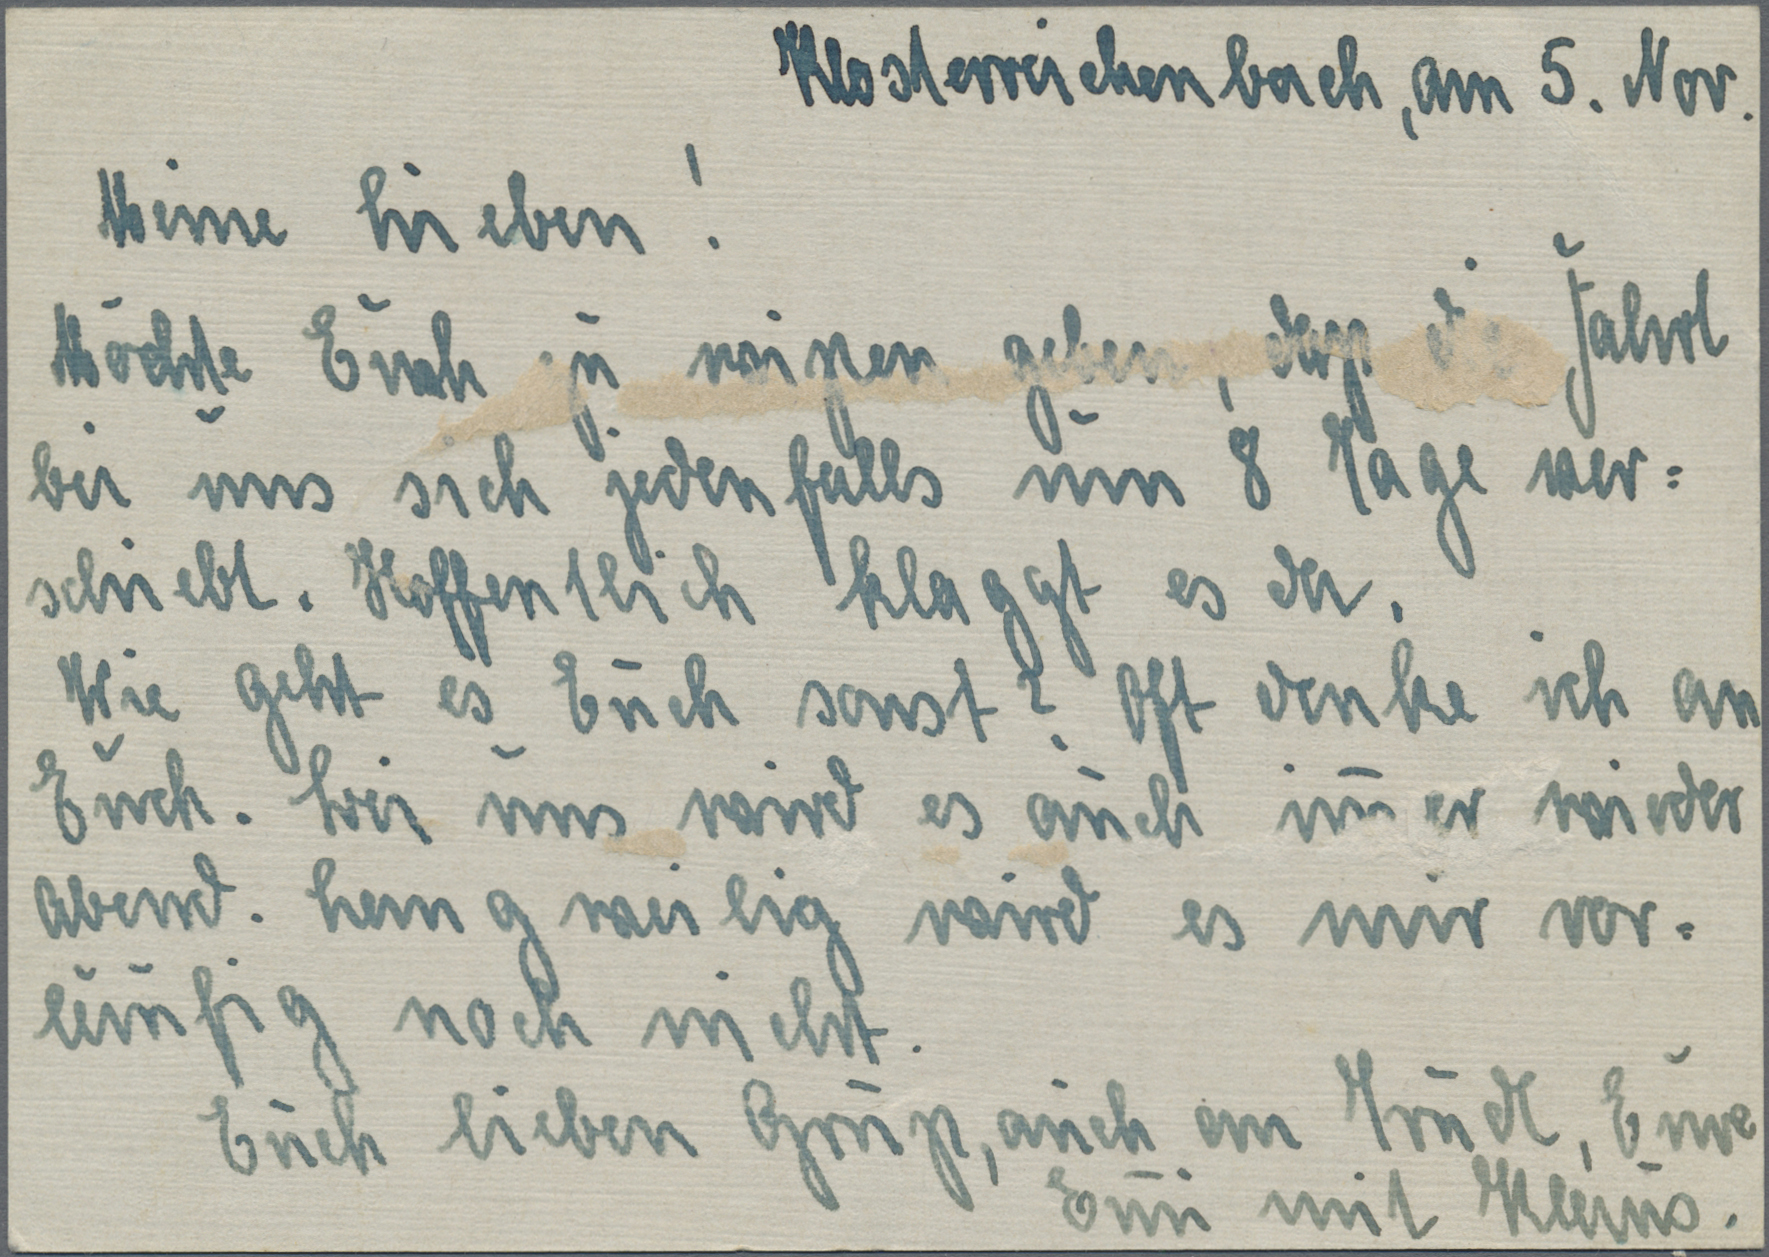 Klosterreichenbach, am 5. Nov.
Meine Lieben!
Möchte Euch zu wissen geben, daß die Fahrt
bei uns sich jedenfalls um 8 Tage ver=
schiebt. Hoffentlich klaggt es da.
Wie geht es Euch sonst? Oft denke ich an
Euch. Bei uns wird es auch im̅er wieder
abend. Langweilig wird es mir vor=
läufig noch nicht.
Euch lieben Gruß, auch an Trudl, Eure
Emi mit Klaus.